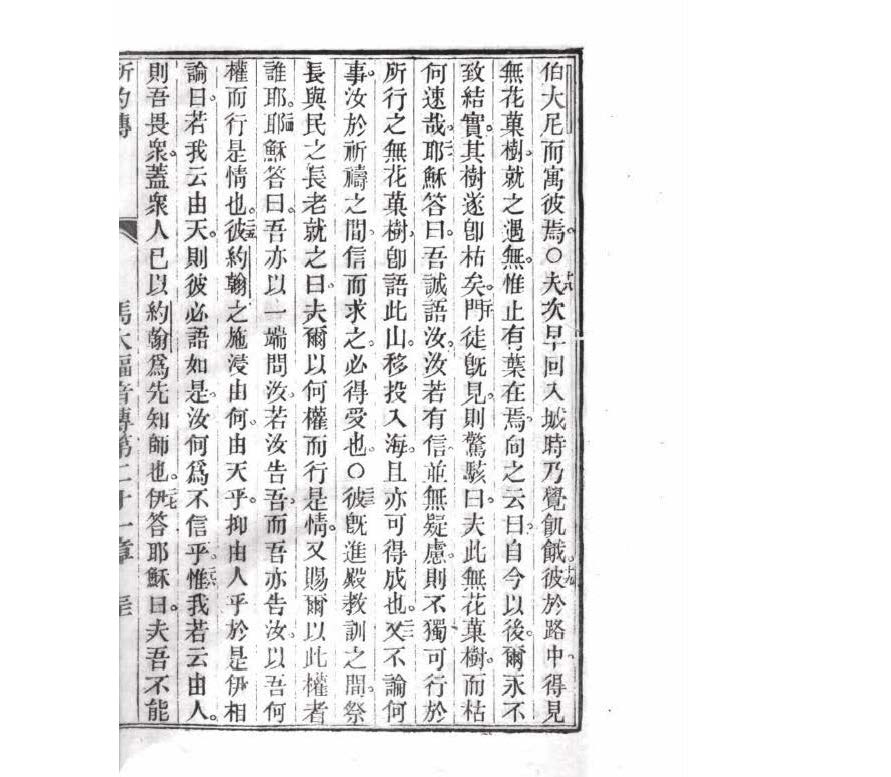 伯大尼而寓彼焉。○十八夫次早回入城時乃覺飢餓。十九彼於路中。得見
無花菓樹。就之遇無。惟止有葉在焉。向之云曰。自今以後。爾永不
致結實。其樹遂卽枯矣。二十門徒旣見。則驚駭曰。夫此無花菓樹。而枯
何速哉。二一耶穌答曰。吾誠語汝。汝若有信並無疑慮。則不獨可行於
所行之無花菓樹。卽語此山。移投入海。且亦可得成也。二二又不論何
事。汝於祈禱之間。信而求之。必得愛也。○二三彼旣進殿教訓之間。祭
長與民之長老就之曰。夫爾以何權而行是情。又賜爾以此權者
誰耶。二四耶穌答曰。吾亦以一端問汝。若汝告吾。而吾亦告汝。以吾何
權而行是情也。二五彼約翰之施浸由何。由天乎。抑由人乎於是伊相
論曰。若我云由天。則彼必語如是。汝何爲不信乎。二六惟我若云由人。
則吾畏衆。蓋衆人已以約翰爲先知師也。二七伊答耶穌曰。夫吾不能
馬太福音傳第二十一章